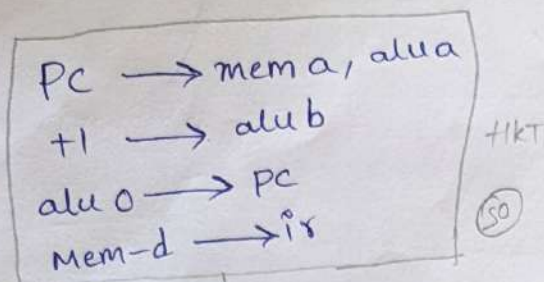 PC → mem a, alu a
+1 → alu b
alu o → PC
Mem-d → ir
HKT
SO